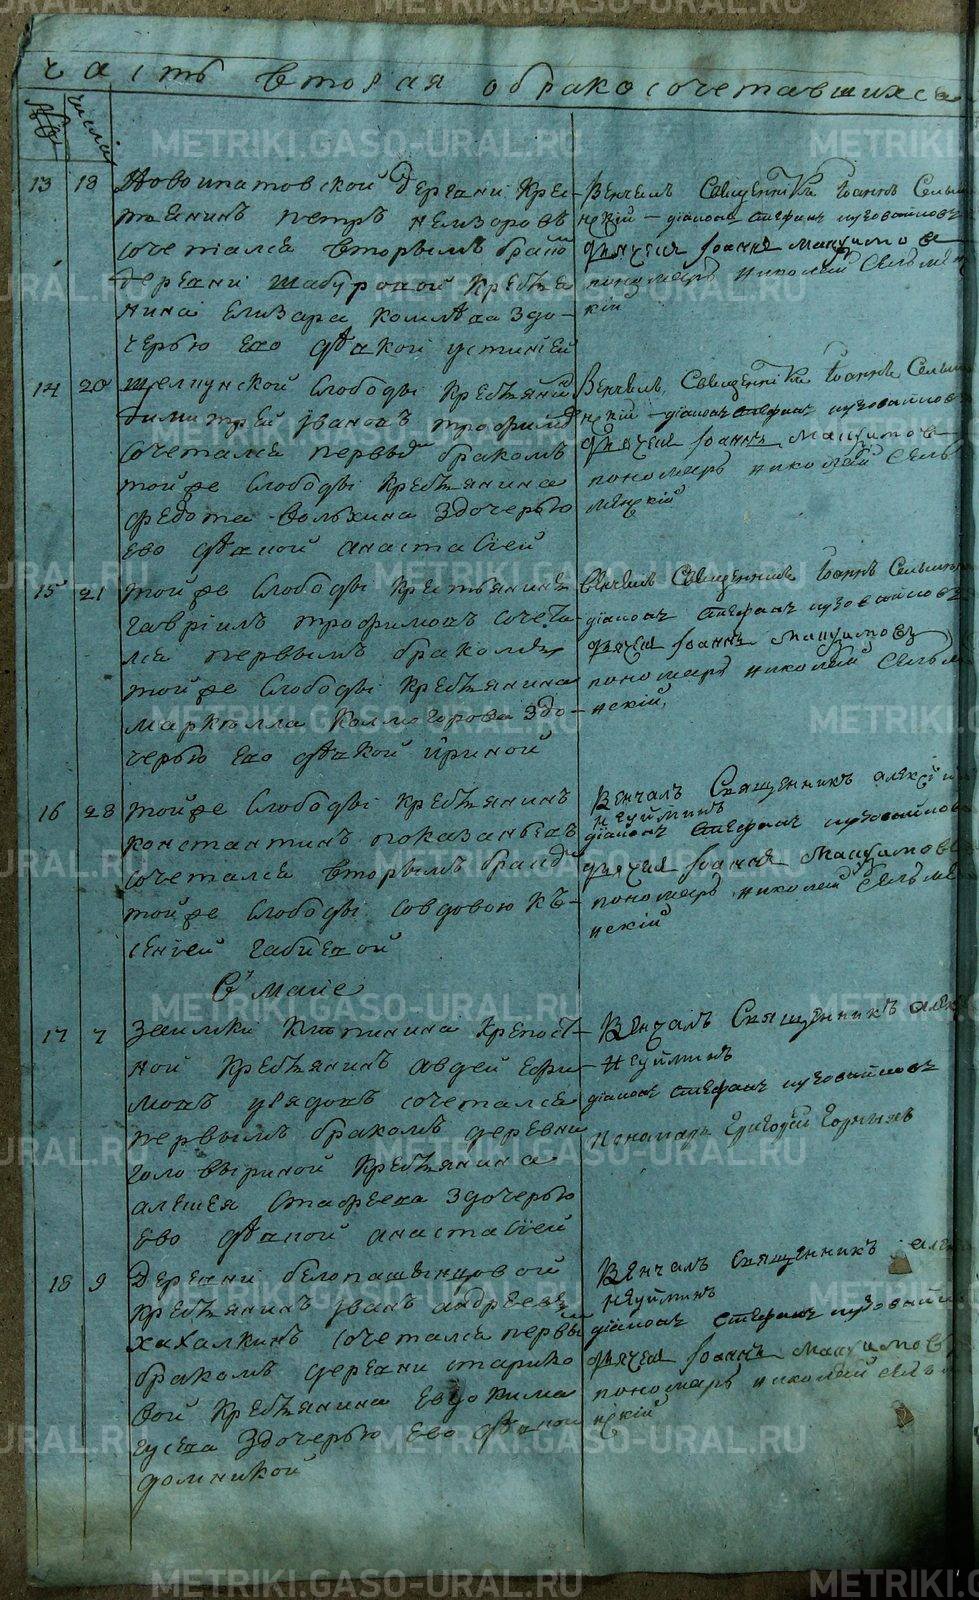 часть вторая обракосочетавшихся
№ числа
13 18 Новоипатовской дерѣвни Крес-
тьянинъ петръ Елизаровъ
сочетался вторымъ бракомъ
деревни шабуровой Крестья
нина Елизара здо-
черью ево дѣвкой устинией
Венчалъ Священникъ Iоаннъ Сельм
нскiй - дiаконъ стефанъ пузовайковъ
дьячекъ Iоаннъ Максимовъ
пономарь николай Сельмен
скiй
14 20 щелкунской Слободы Крестьянинъ
димитрей Ивановъ
сочетался первымъ бракомъ
тойже Слободы Крестьянина
федота Вольхина Здочерью
ево дѣвкой анастасiей
Венчалъ Священникъ Iоаннъ Сельм
нскiй - дiаконъ стефанъ пузовайковъ
дьячекъ Iоаннъ Максимовъ
пономарь николай Сель
менскiй
15 21 тойже Слободы Крестьянинъ
гаврiилъ трофимовъ сочета
лся первымъ бракомъ
тойже Слободы Крестьянина
маркелла Коммогорова здо-
черью ево дѣвкой Ириной
венчалъ Священникъ Iоаннъ Сельм
дiаконъ стефанъ пузовайковъ
дьячекъ Iоаннъ Максимовъ
пономарь николай Сельме
нскiй
16 28 тойже Слободы Крестьянинъ
константинъ показаньевъ
сочетался вторымъ бракомъ
тойже Слободы совдовою Кь-
сенiей
Венчалъ Священникъ алексiй
неуйминъ
дiаконъ стефанъ пузовайковъ
дьячекъ Iоаннъ Максимовъ
пономарь николай Сельме
нскiй
В маiе
17 7 заимки Крепост-
ной Крестьянинъ авдей Ефи-
мовъ сочетался
первымъ бракомъ деревни
головыриной Крестьянина
алексея Стафеева Здочерью
Ево дѣвкой анастасiей
Венчалъ Священникъ алек
неуйминъ
дiаконъ стефанъ пузовайковъ
пономарь Григорей Горныхъ
18 9 Деревни белопашенцовой
крестьянинъ Иванъ андреевъ
хахалкинъ сочетался первы
бракомъ деревни старико
вой Крестьянина Евдокима
гусева Здочерью Ево дѣвкой
домникой
Венчалъ Священникъ алек
неуйминъ
дiаконъ стефанъ пузовайковъ
дьячекъ Iоаннъ Максимовъ
пономарь николай Сельме
нскiй
METRIKI.GASO-URAL.RU